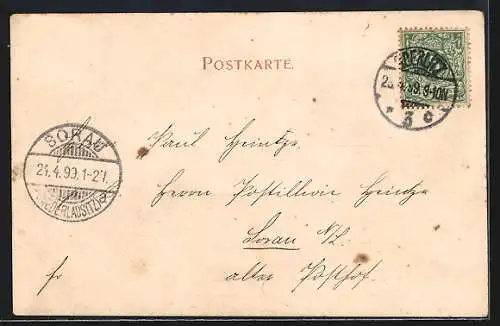 POSTKARTE.
GÖRLITZ
23.4.99.9-10N.
* 3 c
SORAU
24.4.99.1-2N.
(NIEDERLAUSITZ)
Paul Heintze
Herrn Postillion Heintze
Sorau N/L.
alter Posthof.
fr